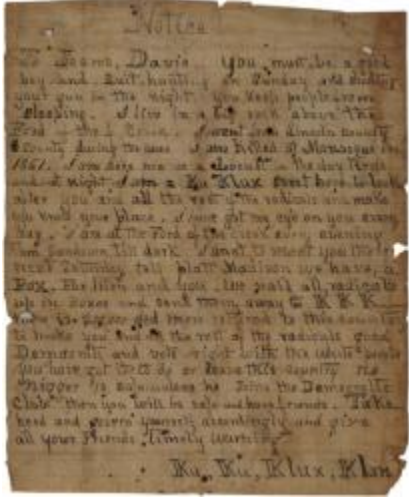 Notice
To Jeems, Davie. you. must. be. a good
boy. and. Quit. hunting on Sunday and shooting
your gun in the night. you keep people from
sleeping. I live in a big rock above the
Ford of the Creek. I went from Lincoln County
County during the war I was Killed at Manassus in
1861. I am here now as a Locust in the day Time and
at night I am a Ku Klux sent here to look
after you and all the rest of the radicals and make
you know your place. I have got my eye on you every
day, I am at the Ford of the creek every evening
From Sundown till dark I want to meet you there
next Saturday tell platt Madison we have, a
Box. For him and you. We nail all, radicals
up in Boxes and send them away to K K K
there is
god men returd to this country
to make you and all the rest of the radicals good
Democrats and vote right with the white people
You have got to do it or leave this country no
nigger is safe unless he Joins the Democratic
Club then you will be safe and have friends. Take
heed and govern yourself accordingly and give
all your Friends. timely warning.
Ku, Ku, Klux, Klan